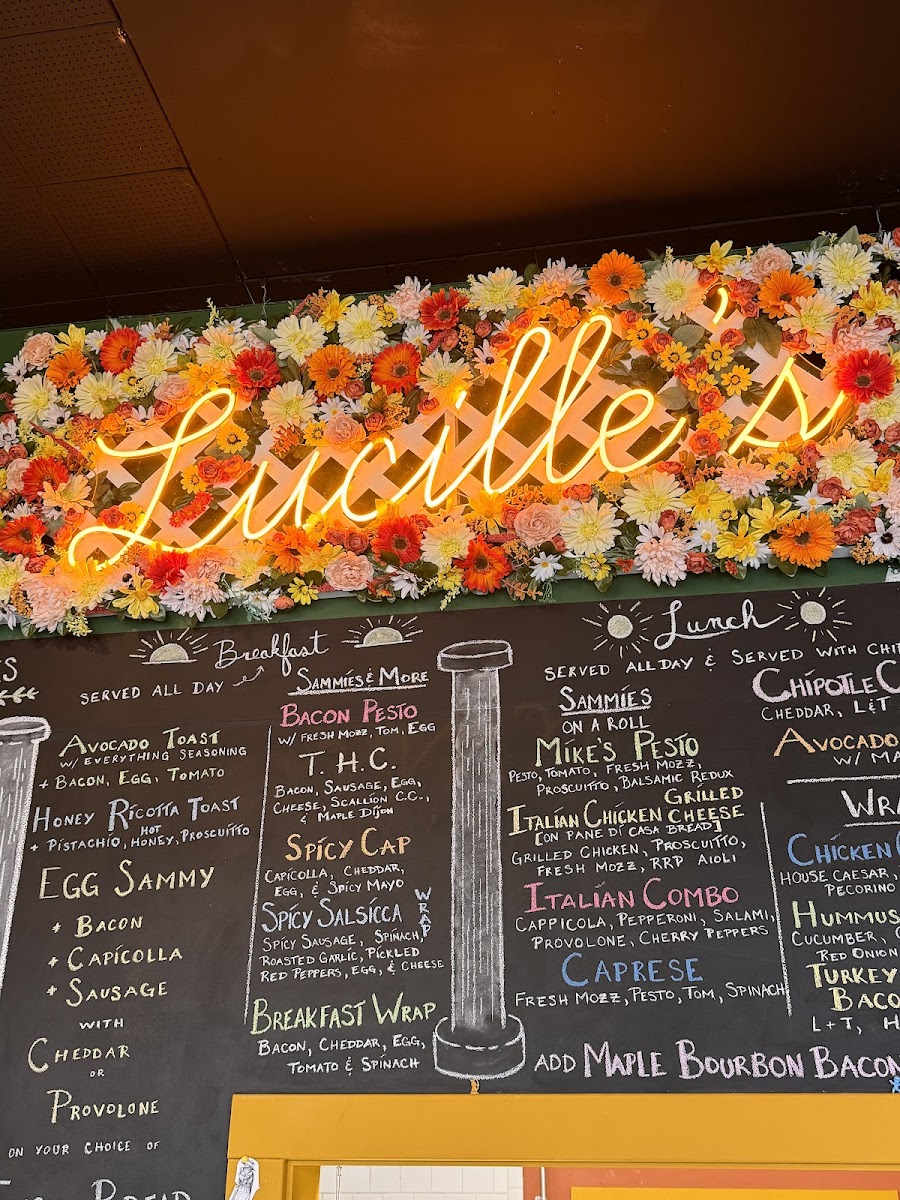 Lucille's
Breakfast
SERVED ALL DAY
AVOCADO TOAST
W/ EVERYTHING SEASONING
+ BACON, EGG, TOMATO
HONEY RICOTTA TOAST
+ PISTACHIO, HOT HONEY, PROSCUITTO
EGG SAMMY
+ BACON
+ CAPICOLLA
+ SAUSAGE
WITH
CHEDDAR
OR
PROVOLONE
ON YOUR CHOICE OF
BREAD
SAMMIES & MORE
BACON PESTO
W/ FRESH MOZZ, TOM, EGG
T.H.C.
BACON, SAUSAGE, EGG,
CHEESE, SCALLION C.C.,
& MAPLE DIJON
SPICY CAP
CAPICOLLA, CHEDDAR,
EGG, & SPICY MAYO
SPICY SALSICCA WRAP
SPICY SAUSAGE, SPINACH,
ROASTED GARLIC, PICKLED
RED PEPPERS, EGG, & CHEESE
BREAKFAST WRAP
BACON, CHEDDAR, EGG,
TOMATO & SPINACH
Lunch
SERVED ALL DAY & SERVED WITH
SAMMIES
ON A ROLL
MIKE'S PESTO
PESTO, TOMATO, FRESH MOZZ,
PROSCUITTO, BALSAMIC REDUX
GRILLED
ITALIAN CHICKEN CHEESE
[ON PANE DI CASA BREAD]
GRILLED CHICKEN, PROSCUITTO,
FRESH MOZZ, RRP AIOLI
ITALIAN COMBO
CAPPICOLA, PEPPERONI, SALAMI,
PROVOLONE, CHERRY PEPPERS
CAPRESE
FRESH MOZZ, PESTO, TOM, SPINACH
CHIPOTLE
CHEDDAR, L&T
AVOCADO
W/
CHICKEN
HOUSE CAESAR,
PECORINO
HUMMUS
CUCUMBER,
RED ONION
TURKEY
BACO
L+T,
ADD MAPLE BOURBON BACON